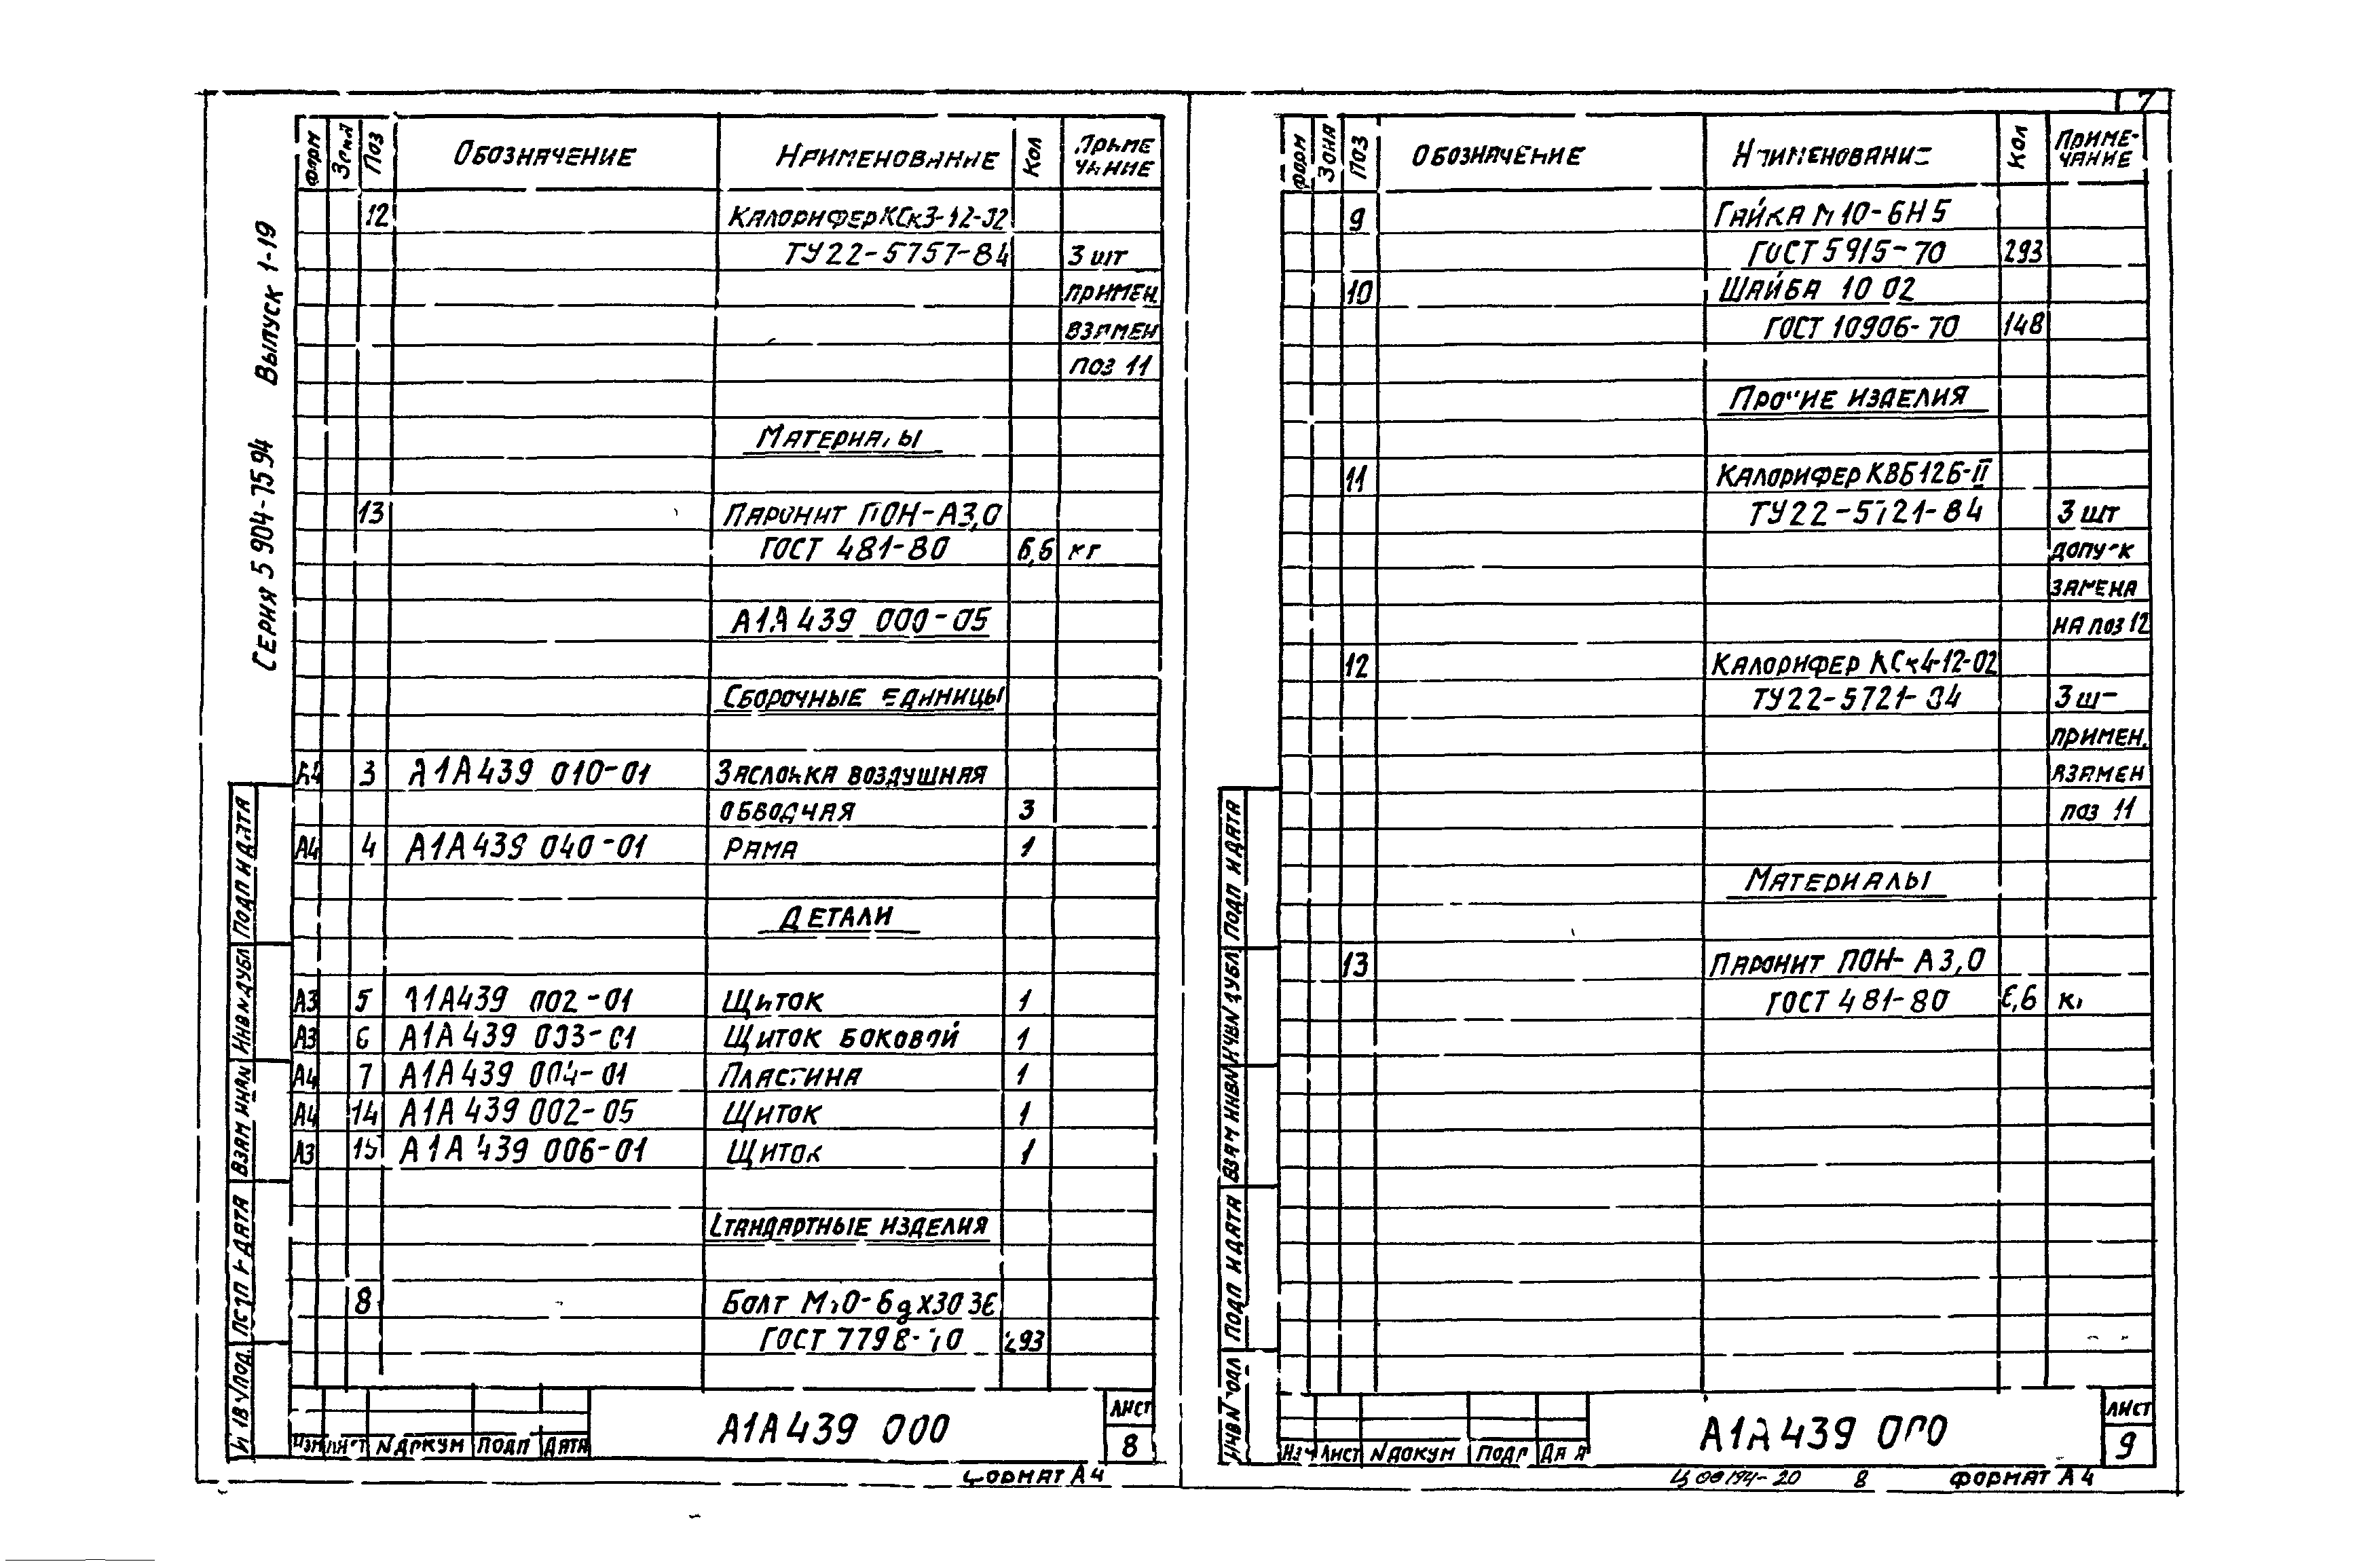 7
Серия 5 904-75 94 Выпуск 1-19
Форм Зона Поз Обозначение Наименование Кол Приме чание
12 Калорифер КСк3-12-02
ТУ22-5757-84 3 шт
примен.
взамен
поз 11
Материалы
13 Паронит ПОН-А3,0
ГОСТ 481-80 6,6 кг
А1А439 000-05
Сборочные единицы
А4 3 А1А439 010-01 Заслонка воздушная
обводная 3
А4 4 А1А439 040-01 Рама 1
Детали
А3 5 А1А439 002-01 Щиток 1
А3 6 А1А439 003-01 Щиток боковой 1
А4 7 А1А439 004-01 Пластина 1
А4 14 А1А439 002-05 Щиток 1
А3 15 А1А439 006-01 Щиток 1
Стандартные изделия
8 Болт М10-6gх30 36
ГОСТ 7798-70 293
Инв N подл. Подп и дата Взам инв N Инв N дубл Подп и дата
Изм Лист N докум Подп Дата
А1А439 000
Лист
8
Формат А4
Форм Зона Поз Обозначение Наименование Кол Приме-чание
9 Гайка М10-6Н 5
ГОСТ 5915-70 293
10 Шайба 10 02
ГОСТ 10906-70 148
Прочие изделия
11 Калорифер КВБ12Б-II
ТУ22-5721-84 3 шт
допуск
замена
на поз 12
12 Калорифер КСк4-12-02
ТУ22-5721-84 3 шт
примен.
взамен
поз 11
Материалы
13 Паронит ПОН-А3,0
ГОСТ 481-80 6,6 кг
Инв N подл Подп и дата Взам инв N Инв N дубл Подп и дата
Изм Лист N докум Подп Дата
А1А439 000
Лист
9
Ц 00194-20 8 Формат А4